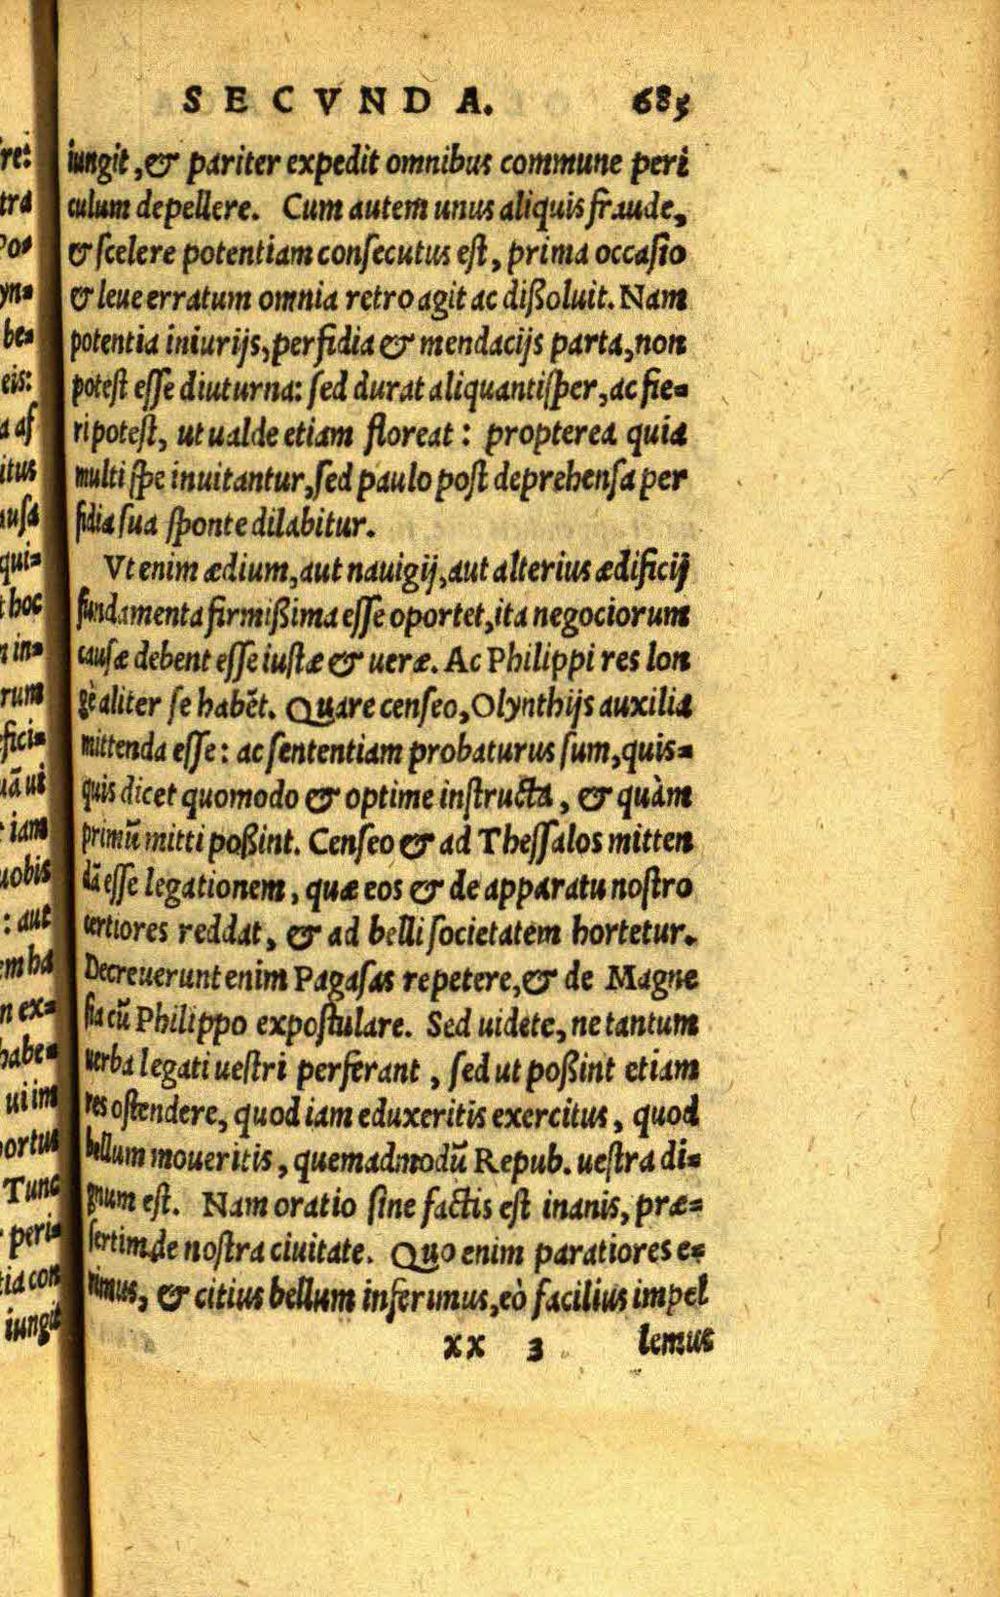 SECVNDA. 685
iungit, & pariter expedit omnibus commune peri
culum depellere. Cum autem unus aliquis fraude,
& scelere potentiam consecutus est, prima occasio
& leue erratum omnia retro agit ac dißoluit. Nam
potentia iniurijs, perfidia & mendacijs parta, non
potest esse diuturna: sed durat aliquantisper, ac fie=
ri potest, ut ualde etiam floreat: propterea quia
multi spe inuitantur, sed paulo post deprehensa per
fidia sua sponte dilabitur.
Vt enim ædium, aut nauigij, aut alterius ædificij
fundamenta firmißima esse oportet, ita negociorum
causæ debent esse iustæ & ueræ. Ac Philippi res lon
gè aliter se habēt. Quare censeo, Olynthijs auxilia
mittenda esse: ac sententiam probaturus sum, quis=
quis dicet quomodo & optime instructa, & quàm
primū mitti poßint. Censeo & ad Thessalos mitten
dā esse legationem, quæ eos & de apparatu nostro
certiores reddat, & ad belli societatem hortetur.
Decreuerunt enim Pagasas repetere, & de Magne
sia cū Philippo expostulare. Sed uidete, ne tantum
uerba legati uestri perferant, sed ut poßint etiam
res ostendere, quod iam eduxeritis exercitus, quod
bellum moueritis, quemadmodū Repub. uestra di=
gnum est. Nam oratio sine factis est inanis, præ=
sertim de nostra ciuitate. Quo enim paratiores e=
rimus, & citius bellum inferimus, eò facilius impel
xx 3 lemus
re:
tra
Po=
yn=
be=
eis:
a as
itus
ausa
qui=
hoc
n in=
rum
fici=
uā ui
iam
uobis
: aut
em ha
n ex=
habe=
ui im
ortus
Tunc
peri=
tia con
iungit